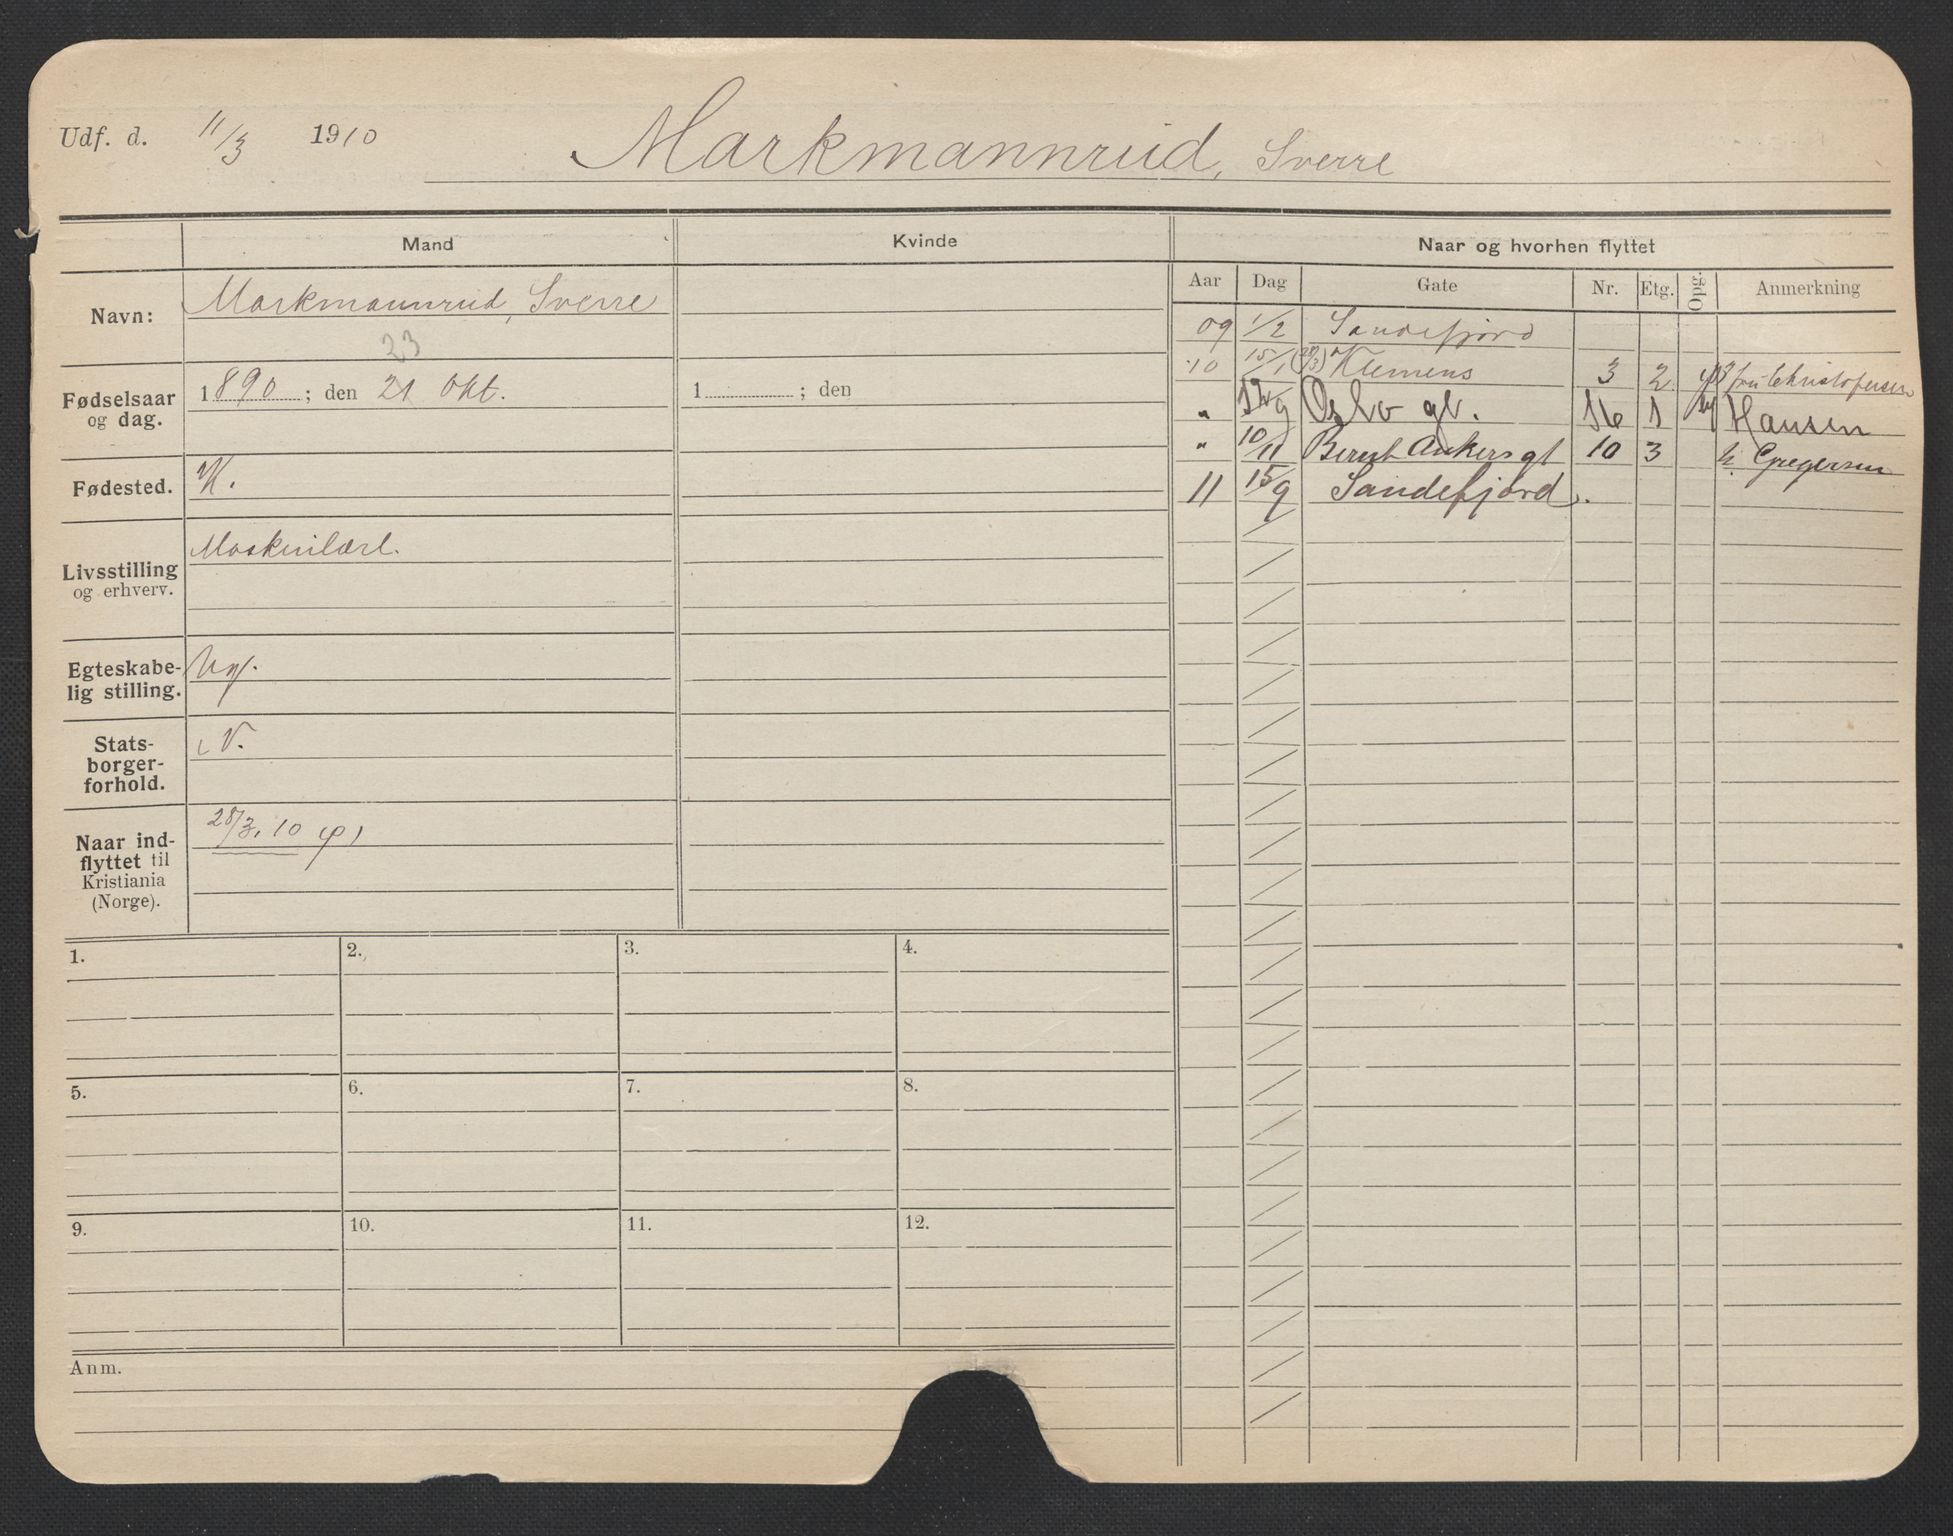 Udf. d. 11/3 1910 Markmannrud, Sverre
Mand Kvinde Naar og hvorhen flyttet
Aar Dag Gate Nr. Etg. Opg. Anmerkning
Navn: Markmannrud, Sverre
23
Fødselsaar og dag. 1890; den 21 Okt. 1 ; den
Fødested. K.
Livsstilling og erhverv. Maskinlærl.
Egteskabe-
lig stilling. Ug.
Stats-
borger-
forhold. N.
Naar ind-
flyttet til
Kristiania
(Norge). 28/3.10
09 1/2 Sandefjord
10 15/1 (28/3) Klemens 3 2 fru Christofersen
" 12/9 Oslo gt. 16 1 Hansen
" 10/11 Bernt Ankers gt 10 3 Gregersen
11 15/9 Sandefjord.
1. 2. 3. 4.
5. 6. 7. 8.
9. 10. 11. 12.
Anm.